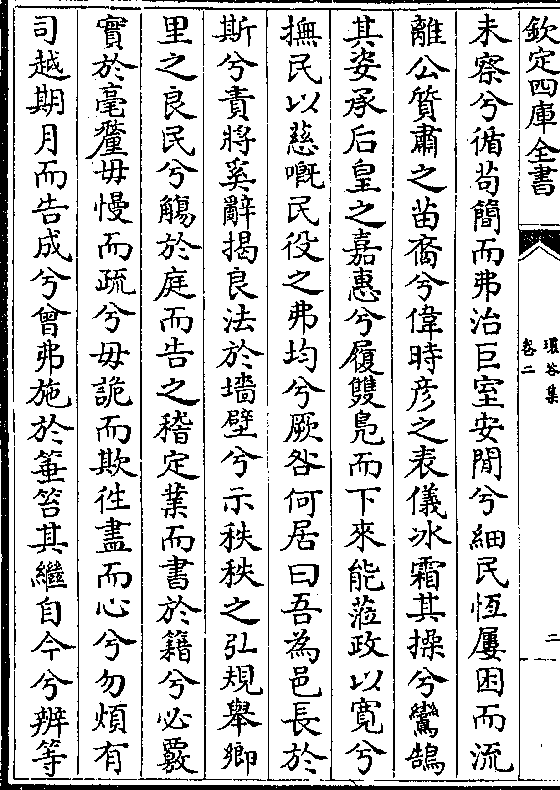 欽定四庫全書
瓌谷集
卷二
二
未察兮循苟簡而弗治巨室安閒兮細民恆屢困而流
離公質肅之苗裔兮偉時彦之表儀冰霜其操兮鸞鵠
其姿承后皇之嘉惠兮履雙鳬而下來能蒞政以寛兮
撫民以慈嘅民役之弗均兮厥咎何居曰吾為邑長於
斯兮責將奚辭揭良法於墻壁兮示秩秩之弘規舉鄉
里之良民兮觴於庭而告之稽定業而書於籍兮必覈
實於毫釐毋慢而疏兮毋詭而欺徃盡而心兮勿煩有
司越期月而告成兮曾弗施於箠笞其繼自今兮辨等